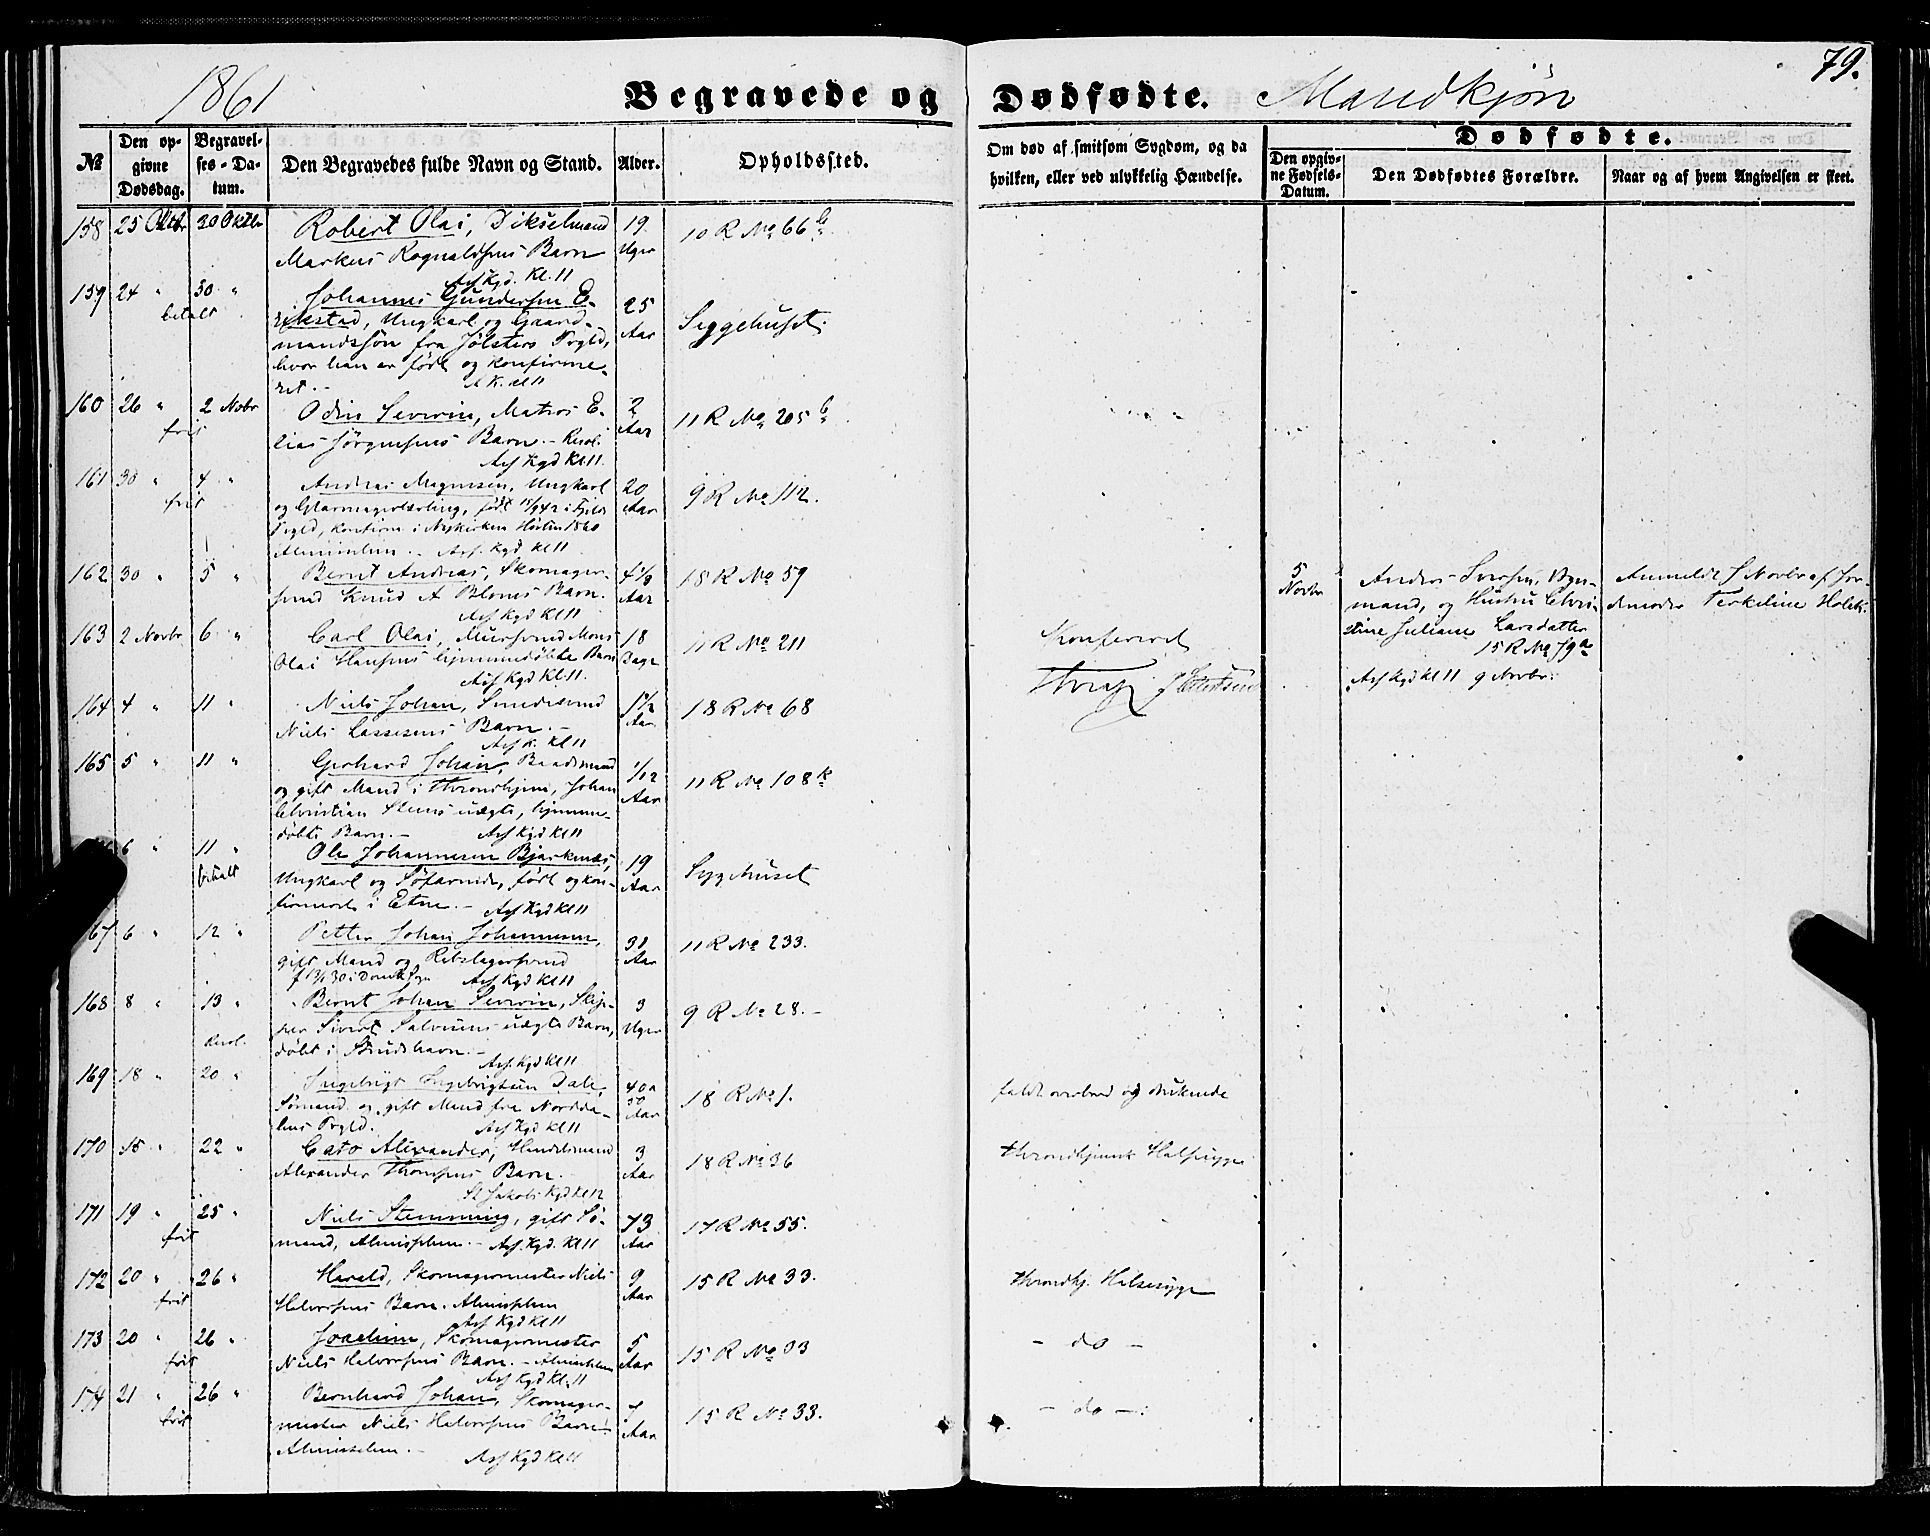 1861 Begravede og Dødfødte. Mandkjøn 79.
№ Den opgivne Dødsdag. Begravelses-Datum. Den Begravedes fulde Navn og Stand. Alder. Opholdssted. Om død af smitsom Sygdom, og da hvilken, eller ved ulykkelig Hændelse. Dødfødte. Den opgivne Fødsels-Datum. Den Dødfødtes Forældre. Naar og af hvem Angivelsen er skeet.
158 25 Oktbr 30 Oktbr Robert Olai, Dikselmand 19 Uger 10 R No 66 b
Markus Rognaldsens Barn
Asf Kgd. Kl. 11
159 24 " 30 " Johannes Gundersen E- 25 Aar Syggehuset
betalt
rikstad, Ungkarl og Gaard-
mandssøn fra Jølsters Prgld,
hvor han er født og konfirme-
ret. - A K. Kl 11
160 26 " 2 Novbr Odin Severin, Matros E- 2 Aar 11 R No 205 b
frit
lias Jørgensens Barn. -
Asf Kgd Kl 11.
161 30 " 4 " Andreas Magnesen, Ungkarl 20 Aar 9 R No 112.
frit
og Glarmagerlærling, født 15/9 42 i Fjeld
Prgld, konfirm i Nykirken Høsten 1860
Asf. Kgd Kl 11
162 30 " 5 " Bernt Andreas, Skomager- 4 Aar 18 R No 59
svend Knud A Bloms Barn.
Asf Kgd Kl 11
5 Novbr Anders Iversen, Bys-
mand, og Hustru Chri-
stine Juliane Larsdatter
15 R No 79 a
Asf Kgd Kl 11 9 Novbr.
Anmeldt 5 Novbr af Jor-
demoder Terkeline Holck
163 2 Novbr 6 " Carl Olai, Muursvend Mons 18 Dage 11 R No 211
Olai Hansens hjemmedøbte Barn
Asf Kgd Kl. 11.
Konfereret
164 4 " 11 " Niels Johan, Smedesvend 1 1/2 Aar 18 R No 68
Niels Lassesens Barn. -
Asf K. Kl 11
165 5 " 11 " Gerhard Johan, Baadsmand 1/12 Aar 11 R No 108 k
og gift Mand i Throndhjem, Johan
Christian Steens uægte, hjemme-
døbte Barn. - Asf Kgd Kl 11
6 " 11 " Ole Johannesen Bjerkenæs, 19 Aar Sygehuset
betalt
Ungkarl og Søfarende, født og kon-
firmeret i Etne. - Asf Kgd Kl 11
67 6 " 12 " Petter Johan Johannesen, 31 Aar 11 R No 233.
gift Mand og Rebslagersvend
Asf Kgd Kl 11
168 8 " 13 " Bernt Johan Severin, Skip- 3 Uger 9 R No 28. -
per Sivert Salvesens uægte Barn,
døbt i Strudshavn. -
Asf. Kgd Kl 11
169 18 " 20 " Ingebrigt Ingebrigtsen Dale, 40 a 50 Aar 18 R No 1. faldt overbord og druknede
Sømand og gift Mand fra Nordda-
lens Prgld. Asf Kgd Kl 11
170 15 " 22 " Cato Alexander, Handelsmand 3 Aar 18 R No 36 Throndhjemsk Halssyge
Alexander Thomsens Barn.
St Jakobs Kgd Kl 12
171 19 " 25 " Niels Stemming, gift Sø- 73 Aar 17 R No 55.
frit
mand, Almisselem. - Asf. Kgd. Kl 11
172 20 " 26 " Harald, Skomagermester Niels 9 Aar 15 R No 33. Throndhj. Halssyge
frit
Halvorsens Barn. Almisselem
Asf Kgd Kl 11
173 20 " 26 " Joachim, Skomagermester 5 Aar 15 R No 33 - do -
frit
Niels Halvorsens Barn. - Almisselem
Asf Kgd Kl. 11
174 21 " 26 " Bernhard Johan, Skomager- Aar 15 R No 33. - do -
frit
mester Niels Halvorsens Barn.
Almisselem. -
Asf Kgd Kl 11